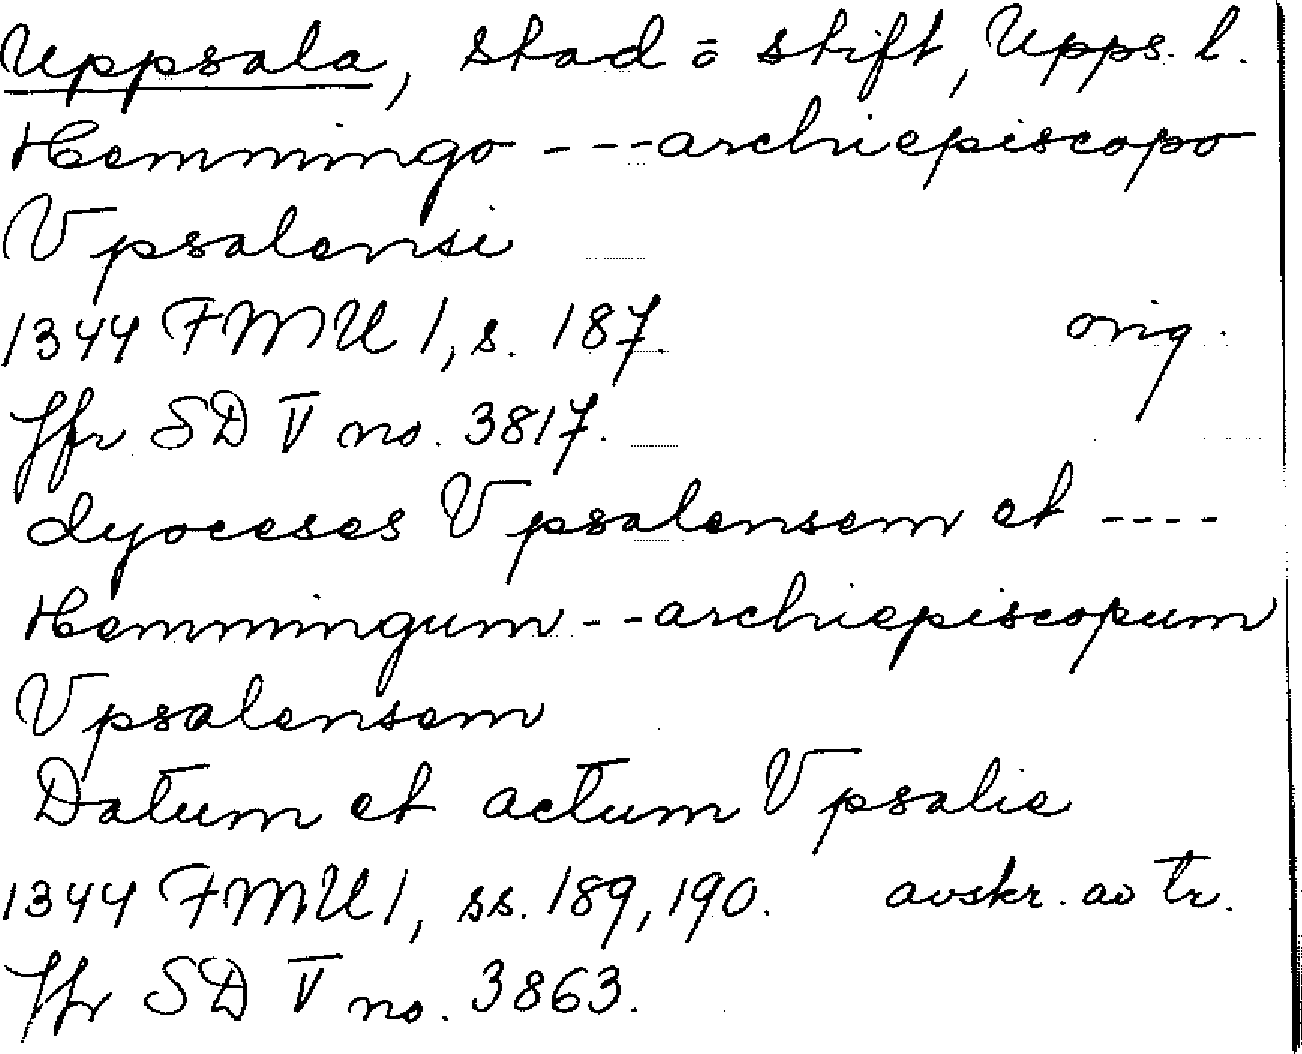 Uppsala, stad o stift, Upps. l.
Hemmingo ---archiepiscopo
Vpsalensi
1344 FMU 1, s. 187. orig.
Jfr SD V no. 3817.
dyoceses Vpsalensem et ----
Hemmingum --archiepiscopum
Vpsalensem
Datum et actum Vpsalie
1344 FMU 1, ss. 189, 190. avskr. av tr.
Jfr SD V no. 3863.